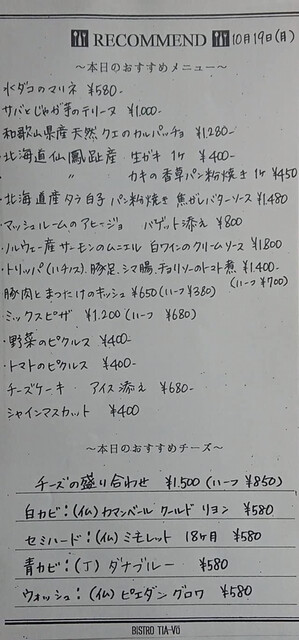 RECOMMEND 10月19日(月)
～本日のおすすめメニュー～
水ダコのマリネ ¥580-
サバとじゃが芋のテリーヌ ¥1.000-
和歌山県産 天然クエのカルパッチョ ¥1.280-
・北海道仙鳳趾産 生ガキ 1ケ ¥400-
〃 〃 カキの香草パン粉焼き 1ケ ¥450
・北海道産タラ白子 パン粉焼き 焦がしバターソース ¥1.480
・マッシュルームのアヒージョ バゲット添え ¥800
・ノルウェー産サーモンのムニエル 白ワインのクリームソース ¥1.800
・トリッパ(ハチノス)、豚足、シマ腸、チョリソーのトマト煮 ¥1.400-
(ハーフ ¥700)
豚肉とまつたけのキッシュ ¥650 (ハーフ ¥380)
・ミックスピザ ¥1.200 (ハーフ ¥680)
・野菜のピクルス ¥400-
・トマトのピクルス ¥400-
チーズケーキ アイス添え ¥680-
シャインマスカット ¥400
～本日のおすすめチーズ～
チーズの盛り合わせ ¥1.500 (ハーフ ¥850)
白カビ:(仏) カマンベール クールド リヨン ¥580
セミハード:(仏) ミモレット 18ヶ月 ¥580
青カビ:(丁) ダナブルー ¥580
ウォッシュ:(仏) ピエダングロワ ¥580
BISTRO TIA-VO